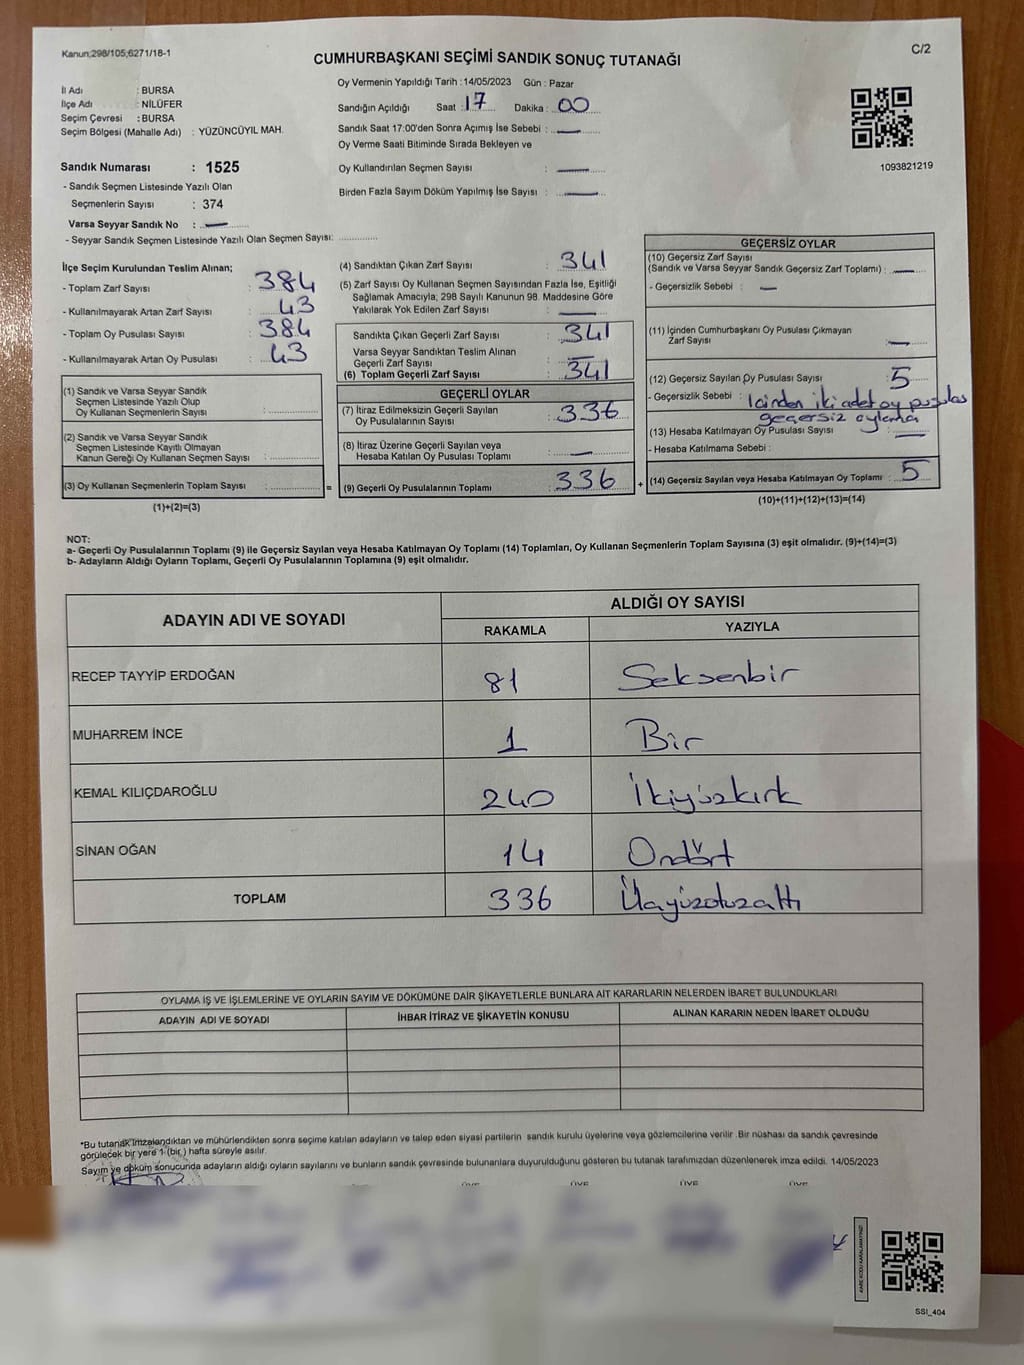 Kanun;298/105;6271/18-1
C/2
CUMHURBAŞKANI SEÇİMİ SANDIK SONUÇ TUTANAĞI
İl Adı : BURSA
İlçe Adı : NİLÜFER
Seçim Çevresi : BURSA
Seçim Bölgesi (Mahalle Adı) : YÜZÜNCÜYIL MAH.
Sandık Numarası : 1525
- Sandık Seçmen Listesinde Yazılı Olan
Seçmenlerin Sayısı : 374
Varsa Seyyar Sandık No : —
- Seyyar Sandık Seçmen Listesinde Yazılı Olan Seçmen Sayısı: ..............
Oy Vermenin Yapıldığı Tarih : 14/05/2023 Gün : Pazar
Sandığın Açıldığı Saat : 17 Dakika : 00
Sandık Saat 17:00'den Sonra Açımış İse Sebebi : —
Oy Verme Saati Bitiminde Sırada Bekleyen ve
Oy Kullandırılan Seçmen Sayısı : —
Birden Fazla Sayım Döküm Yapılmış İse Sayısı : —
1093821219
İlçe Seçim Kurulundan Teslim Alınan;
- Toplam Zarf Sayısı : 384
- Kullanılmayarak Artan Zarf Sayısı : 43
- Toplam Oy Pusulası Sayısı : 384
- Kullanılmayarak Artan Oy Pusulası : 43
(1) Sandık ve Varsa Seyyar Sandık
Seçmen Listesinde Yazılı Olup
Oy Kullanan Seçmenlerin Sayısı : ..............
(2) Sandık ve Varsa Seyyar Sandık
Seçmen Listesinde Kayıtlı Olmayan
Kanun Gereği Oy Kullanan Seçmen Sayısı : ..............
(3) Oy Kullanan Seçmenlerin Toplam Sayısı : .............. =
(1)+(2)=(3)
(4) Sandıktan Çıkan Zarf Sayısı : 341
(5) Zarf Sayısı Oy Kullanan Seçmen Sayısından Fazla İse, Eşitliği
Sağlamak Amacıyla; 298 Sayılı Kanunun 98. Maddesine Göre
Yakılarak Yok Edilen Zarf Sayısı : —
Sandıkta Çıkan Geçerli Zarf Sayısı : 341
Varsa Seyyar Sandıktan Teslim Alınan
Geçerli Zarf Sayısı : —
(6) Toplam Geçerli Zarf Sayısı : 341
GEÇERLİ OYLAR
(7) İtiraz Edilmeksizin Geçerli Sayılan
Oy Pusulalarının Sayısı : 336
(8) İtiraz Üzerine Geçerli Sayılan veya
Hesaba Katılan Oy Pusulası Toplamı : —
(9) Geçerli Oy Pusulalarının Toplamı : 336 +
GEÇERSİZ OYLAR
(10) Geçersiz Zarf Sayısı
(Sandık ve Varsa Seyyar Sandık Geçersiz Zarf Toplamı) : —
- Geçersizlik Sebebi : —
(11) İçinden Cumhurbaşkanı Oy Pusulası Çıkmayan
Zarf Sayısı : —
(12) Geçersiz Sayılan Oy Pusulası Sayısı : 5
- Geçersizlik Sebebi : İçinden iki adet oy pusulası
geçersiz oylama
(13) Hesaba Katılmayan Oy Pusulası Sayısı : —
- Hesaba Katılmama Sebebi :
(14) Geçersiz Sayılan veya Hesaba Katılmayan Oy Toplamı : 5
(10)+(11)+(12)+(13)=(14)
NOT:
a- Geçerli Oy Pusulalarının Toplamı (9) ile Geçersiz Sayılan veya Hesaba Katılmayan Oy Toplamı (14) Toplamları, Oy Kullanan Seçmenlerin Toplam Sayısına (3) eşit olmalıdır. (9)+(14)=(3)
b- Adayların Aldığı Oyların Toplamı, Geçerli Oy Pusulalarının Toplamına (9) eşit olmalıdır.
ADAYIN ADI VE SOYADI ALDIĞI OY SAYISI
RAKAMLA YAZIYLA
RECEP TAYYİP ERDOĞAN 81 Seksenbir
MUHARREM İNCE 1 Bir
KEMAL KILIÇDAROĞLU 240 İkiyüzkırk
SİNAN OĞAN 14 Ondört
TOPLAM 336 Üçyüzotuzaltı
OYLAMA İŞ VE İŞLEMLERİNE VE OYLARIN SAYIM VE DÖKÜMÜNE DAİR ŞİKAYETLERLE BUNLARA AİT KARARLARIN NELERDEN İBARET BULUNDUKLARI
ADAYIN ADI VE SOYADI İHBAR İTİRAZ VE ŞİKAYETİN KONUSU ALINAN KARARIN NEDEN İBARET OLDUĞU
*Bu tutanak imzalandıktan ve mühürlendikten sonra seçime katılan adayların ve talep eden siyasi partilerin sandık kurulu üyelerine veya gözlemcilerine verilir .Bir nüshası da sandık çevresinde
görülecek bir yere 1 (bir ) hafta süreyle asılır.
Sayım ve döküm sonucunda adayların aldığı oyların sayılarını ve bunların sandık çevresinde bulunanlara duyurulduğunu gösteren bu tutanak tarafımızdan düzenlenerek imza edildi. 14/05/2023
ÜYE ÜYE ÜYE ÜYE
SSI_404